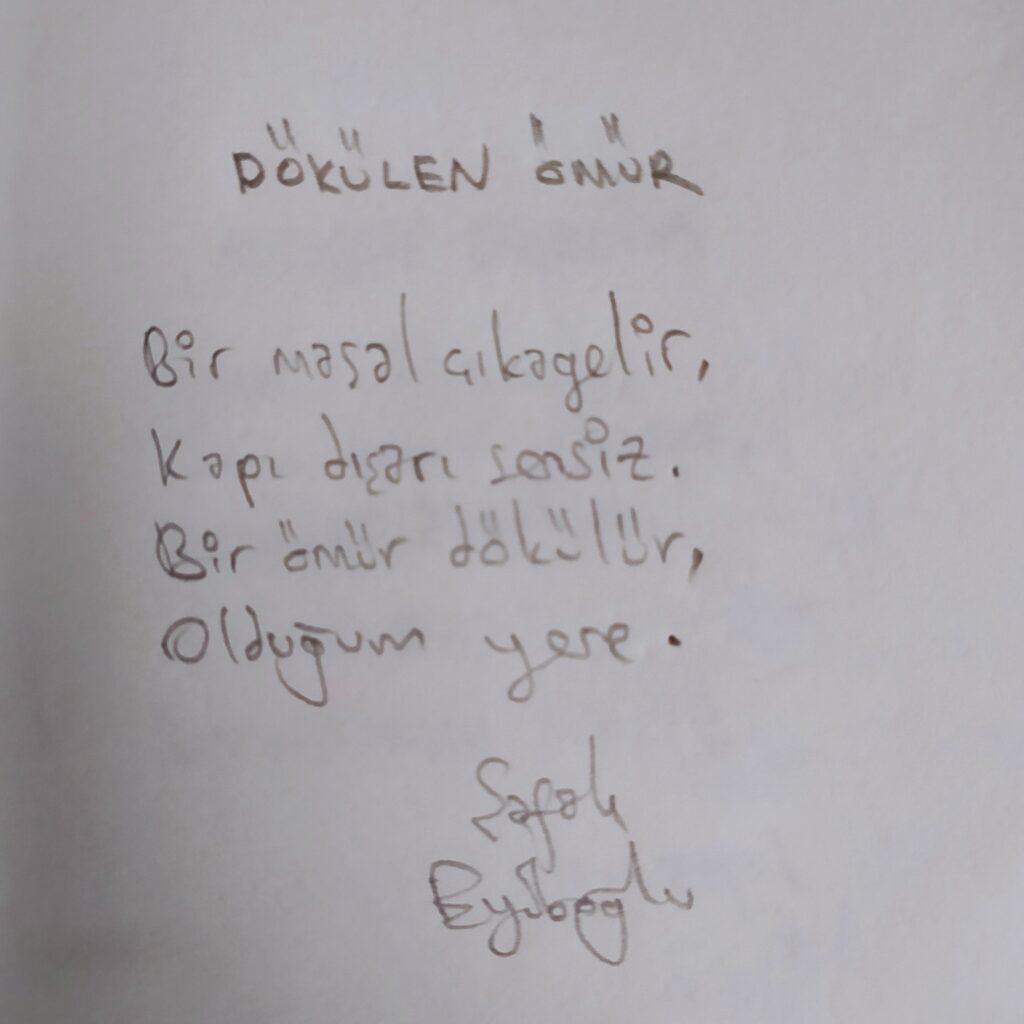 DÖKÜLEN ÖMÜR
Bir masal çıkagelir,
Kapı dışarı sensiz.
Bir ömür dökülür,
Olduğum yere.
Şafak
Eyüboğlu